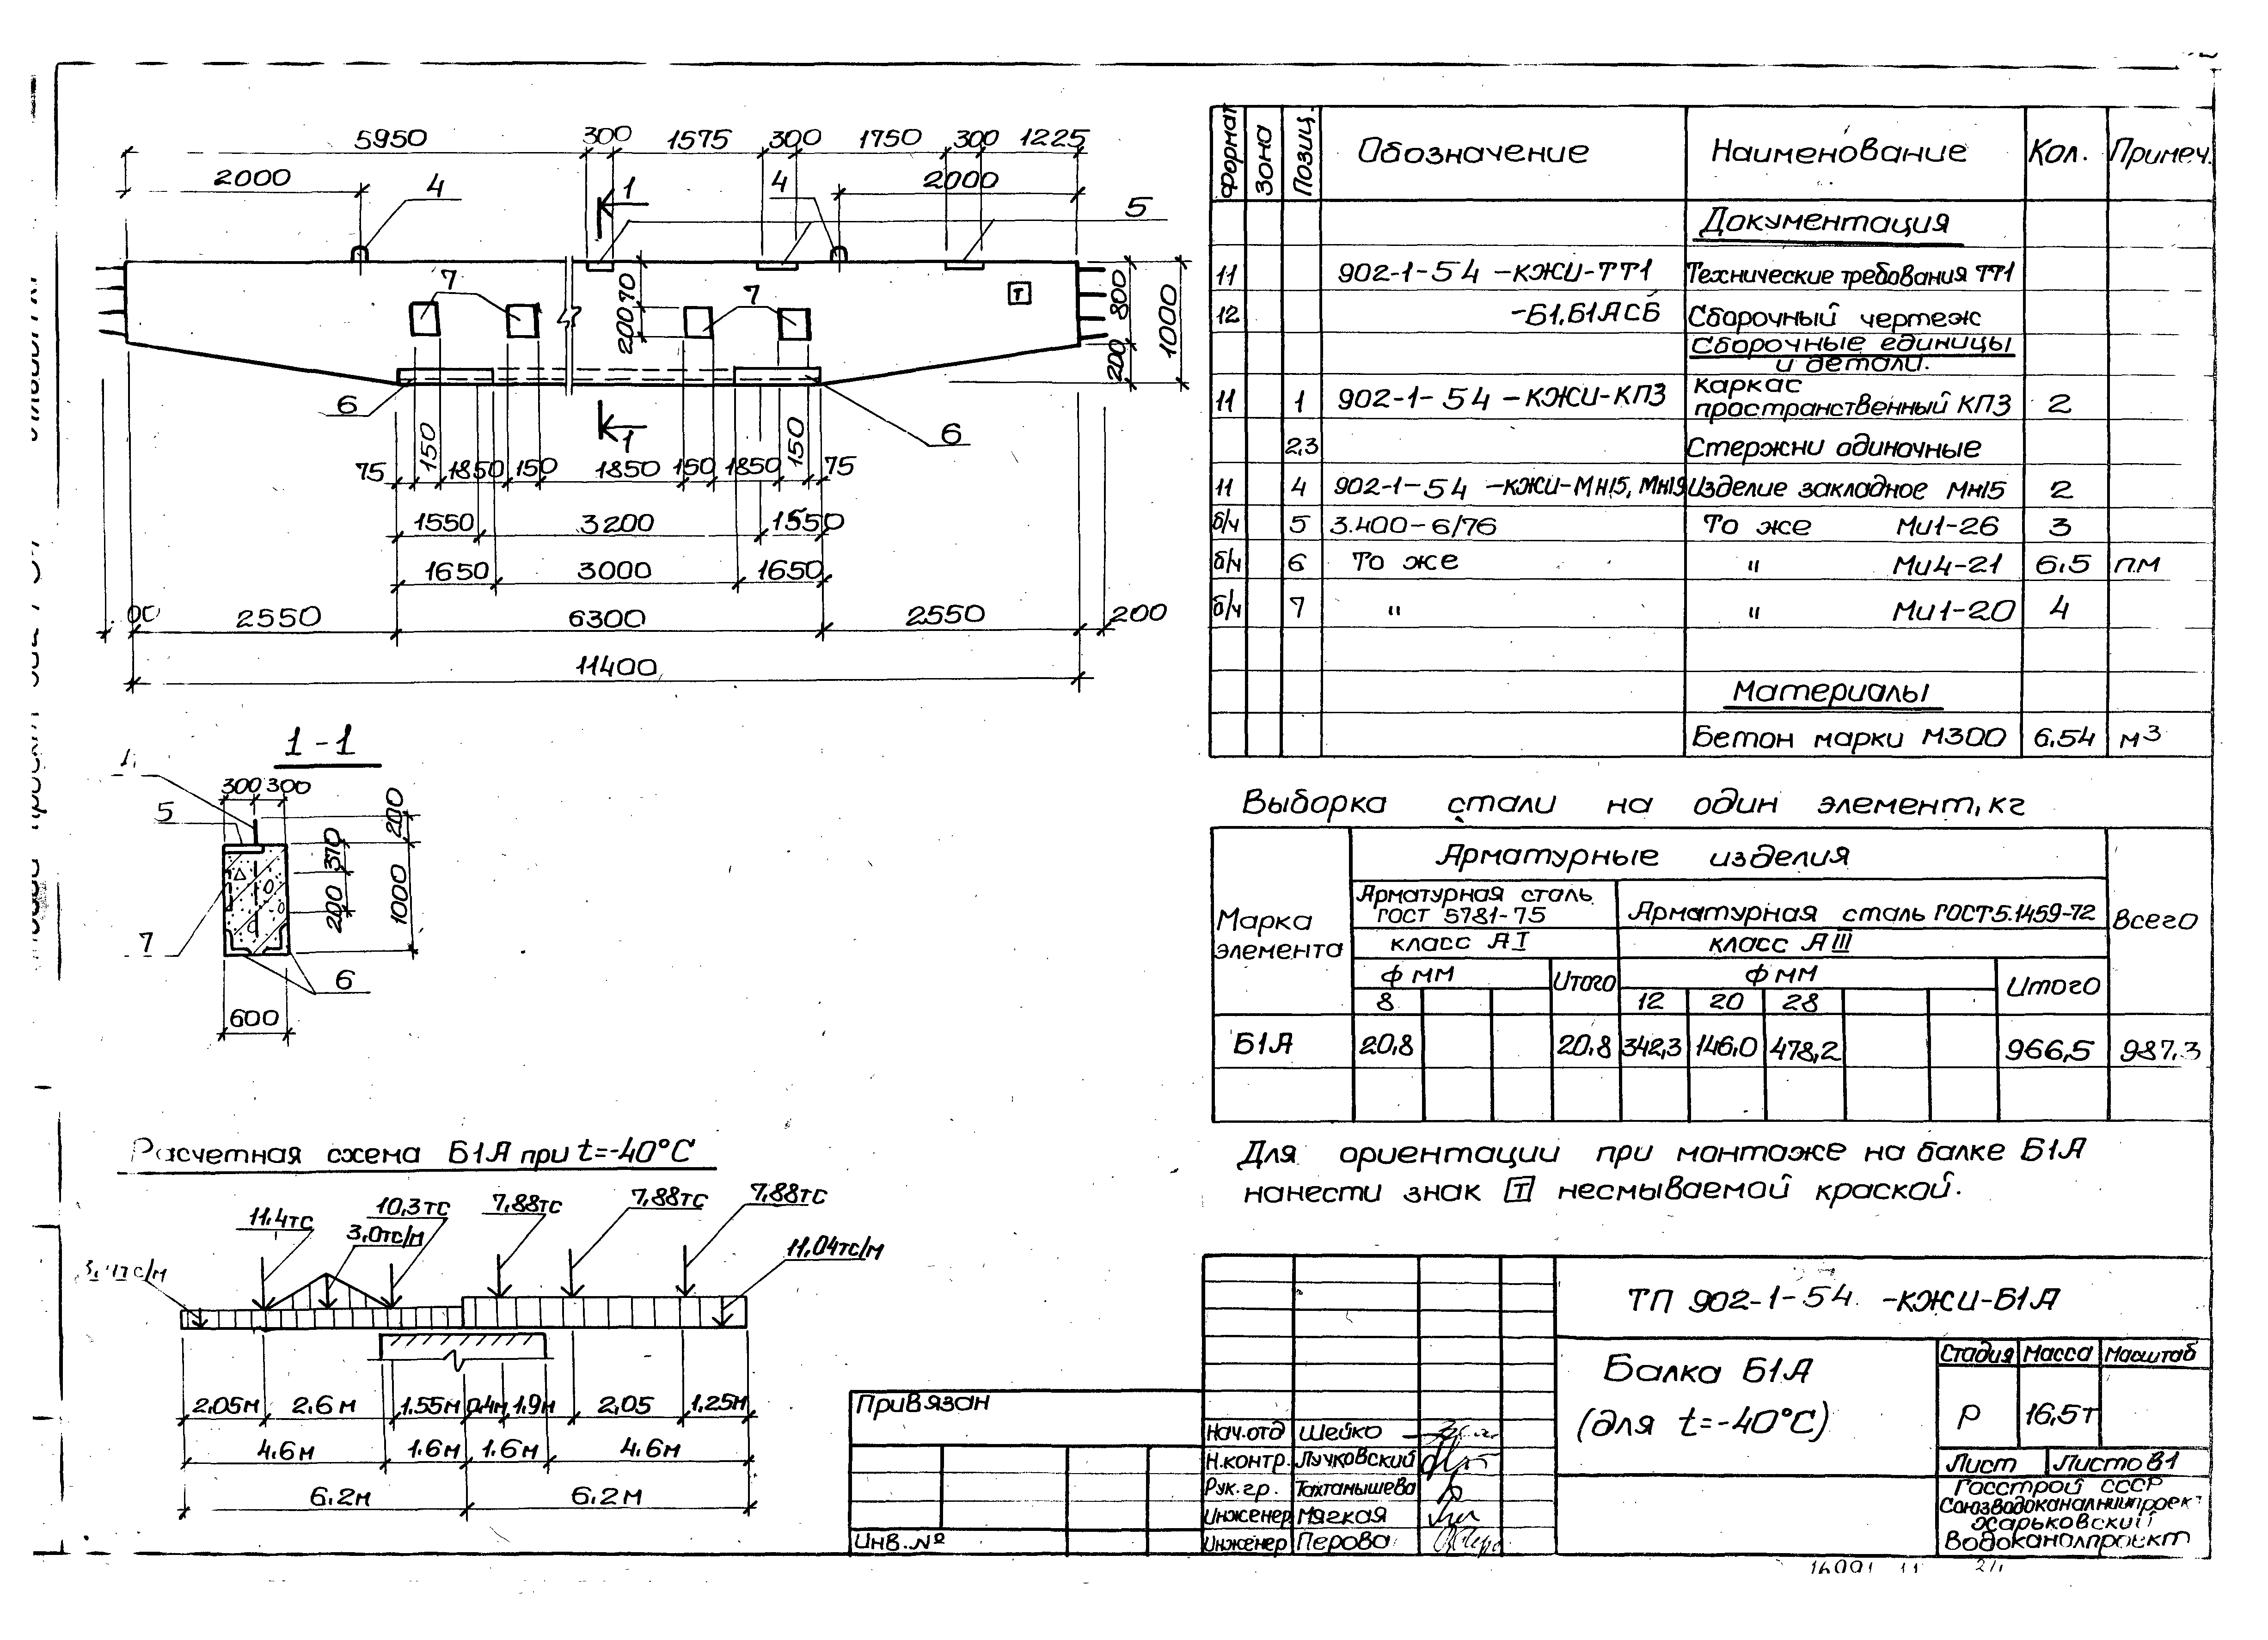 5950 300 1575 300 1750 300 1225
2000 4 1 4 2000 5
7 7 Т
70 200 800 1000 200
6 1 6
75 150 1850 150 1850 150 1850 150 75
1550 3200 1550
1650 3000 1650
2550 6300 2550 200
11400
1-1
300 300
5 200
370 200 1000
7
6
600
Расчетная схема Б1А при t=-40°С
11,4тс 10,3тс 7,88тс 7,88тс 7,88тс
3,0тс/м 11,04тс/м
2.05м 2.6м 1.55м 0,4м 1.9м 2,05 1.25м
4.6м 1.6м 1.6м 4.6м
6.2м 6.2м
Формат Зона Позиц. Обозначение Наименование Кол. Примеч.
Документация
11 902-1-54 -КЖИ-ТТ1 Технические требования ТТ1
12 -Б1.Б1АСБ Сборочный чертеж
Сборочные единицы
и детали.
11 1 902-1-54 -КЖИ-КП3 Каркас
пространственный КП3 2
2,3 Стержни одиночные
11 4 902-1-54 -КЖИ-МН15, МН19 Изделие закладное МН15 2
б/ч 5 3.400-6/76 То же Ми1-26 3
б/ч 6 То же " Ми4-21 6,5 п.м
б/ч 7 " " Ми1-20 4
Материалы
Бетон марки М300 6,54 м3
Выборка стали на один элемент, кг
Марка элемента Арматурные изделия Всего
Арматурная сталь ГОСТ 5781-75 Арматурная сталь ГОСТ5.1459-72
класс АI класс АIII
ф мм Итого ф мм Итого
8 12 20 28
Б1А 20,8 20,8 342,3 146,0 478,2 966,5 987,3
Для ориентации при монтаже на балке Б1А
нанести знак Т несмываемой краской.
ТП 902-1-54 -КЖИ-Б1А
Балка Б1А
(для t=-40°С)
Стадия Масса Масштаб
Р 16,5т
Лист Листов 1
Госстрой СССР
Союзводоканалниипроект
Харьковский
Водоканалпроект
Привязан
Инв.№
Нач.отд Шейко
Н.контр. Лучковский
Рук.гр. Тахтамышева
Инженер Мягкая
Инженер Перова